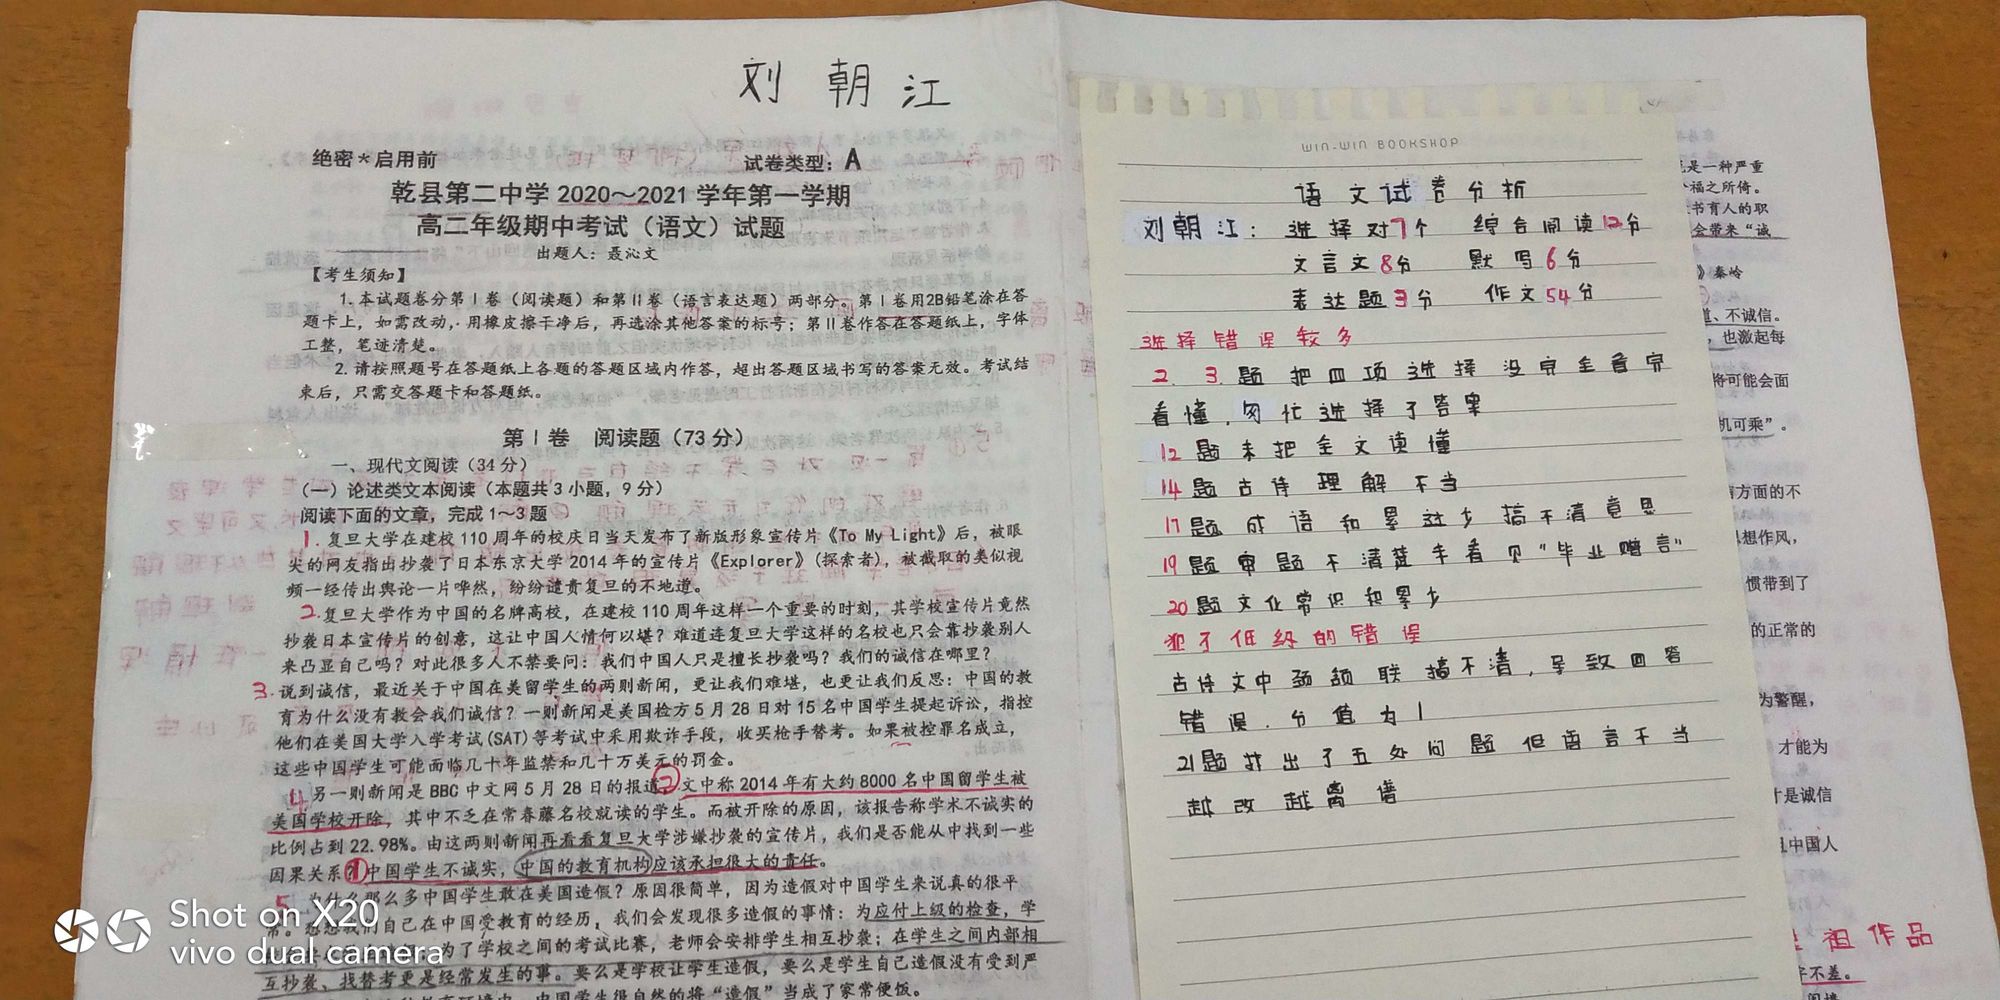 刘朝江
绝密*启用前
试卷类型：A
乾县第二中学2020～2021学年第一学期
高二年级期中考试（语文）试题
出题人：聂沁文
【考生须知】
1.本试题卷分第Ⅰ卷（阅读题）和第Ⅱ卷（语言表达题）两部分。第Ⅰ卷用2B铅笔涂在答
题卡上，如需改动，用橡皮擦干净后，再选涂其他答案的标号；第Ⅱ卷作答在答题纸上，字体
工整，笔迹清楚。
2.请按照题号在答题纸上各题的答题区域内作答，超出答题区域书写的答案无效。考试结
束后，只需交答题卡和答题纸。
第Ⅰ卷 阅读题（73分）
一、现代文阅读（34分）
（一）论述类文本阅读（本题共3小题，9分）
阅读下面的文章，完成1～3题
1.复旦大学在建校110周年的校庆日当天发布了新版形象宣传片《To My Light》后，被眼
尖的网友指出抄袭了日本东京大学2014年的宣传片《Explorer》（探索者），被截取的类似视
频一经传出舆论一片哗然，纷纷谴责复旦的不地道。
2.复旦大学作为中国的名牌高校，在建校110周年这样一个重要的时刻，其学校宣传片竟然
抄袭日本宣传片的创意，这让中国人情何以堪？难道连复旦大学这样的名校也只会靠抄袭别人
来凸显自己吗？对此很多人不禁要问：我们中国人只是擅长抄袭吗？我们的诚信在哪里？
3.说到诚信，最近关于中国在美留学生的两则新闻，更让我们难堪，也更让我们反思：中国的教
育为什么没有教会我们诚信？一则新闻是美国检方5月28日对15名中国学生提起诉讼，指控
他们在美国大学入学考试(SAT)等考试中采用欺诈手段，收买枪手替考。如果被控罪名成立，
这些中国学生可能面临几十年监禁和几十万美元的罚金。
4.另一则新闻是BBC中文网5月28日的报道②文中称2014年有大约8000名中国留学生被
美国学校开除，其中不乏在常春藤名校就读的学生。而被开除的原因，该报告称学术不诚实的
比例占到22.98%。由这两则新闻再看看复旦大学涉嫌抄袭的宣传片，我们是否能从中找到一些
因果关系？①中国学生不诚实，中国的教育机构应该承担很大的责任。
5.为什么那么多中国学生敢在美国造假？原因很简单，因为造假对中国学生来说真的很平
常。想想我们自己在中国受教育的经历，我们会发现很多造假的事情：为应付上级的检查，学
为了学校之间的考试比赛，老师会安排学生相互抄袭；在学生之间内部相
互抄袭、找替考更是经常发生的事。要么是学校让学生造假，要么是学生自己造假没有受到严
中国学生很自然的将“造假”当成了家常便饭。
WIN-WIN BOOKSHOP
语文试卷分析
刘朝江：选择对7个 综合阅读12分
文言文8分 默写6分
表达题3分 作文54分
选择错误较多
2.3.题把四项选择没完全看完
看懂，匆忙选择了答案
12题未把全文读懂
14题古诗理解不当
17题成语积累过少搞不清意思
19题审题不清楚未看见“毕业赠言”
20题文化常识积累少
犯了低级的错误
古诗文中颈颔联搞不清，导致回答
错误.分值为1
21题找出了五处问题但语言不当
越改越离谱
是一种严重
福之所倚。
书育人的职
会带来“诚
》秦岭
、不诚信。
，也激起每
将可能会面
机可乘”。
方面的不
思想作风，
惯带到了
的正常的
为警醒，
才能为
才是诚信
中国人
祖作品
字不差。
Shot on X20
vivo dual camera